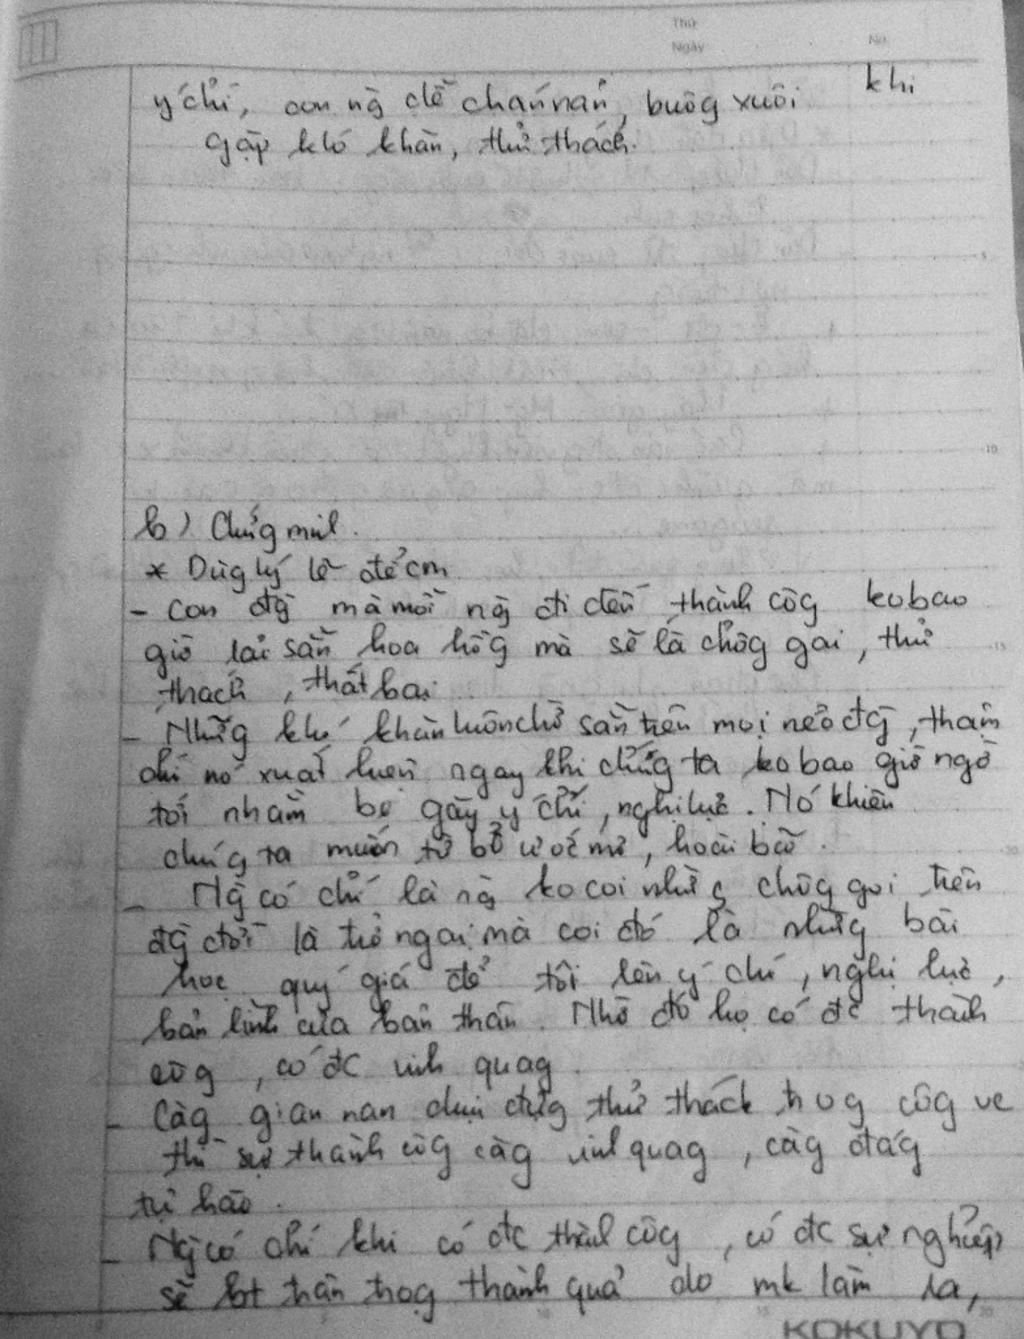 Thứ
Ngày
No.
ý chí, con ng dễ chán nản, buôg xuôi khi
gặp khó khăn, thử thách.
b) Chứg mil.
* Dùg lý lẽ để cm
- Con đg mà mỗi ng đi đến thành côg ko bao
giờ lải sẵn hoa hồg mà sẽ là chôg gai, thử
thách, thất bại
- Nhữg khó khăn luôn chờ sẵn trên mọi nẻo đg, thậm
chí nó xuất hiện ngay khi chúg ta ko bao giờ ngờ
tới nhằm bẻ gãy ý chí, nghị lực. Nó khiến
chúg ta muốn từ bỏ ước mơ, hoài bão.
- Ng có chí là ng ko coi nhữg chôg gai trên
đg đời là trở ngại mà coi đó là nhữg bài
học quý giá để tôi lên ý chí, nghị lực,
bản lĩnh của bản thân. Nhờ đó họ có đc thành
côg, có đc vinh quag.
- Càg gian nan chịu đựg thử thách trog côg vc
thì sự thành côg càg vinh quag, càg đág
tự hào.
- Ng có chí khi có đc thàh côg, có đc sự nghiệp
sẽ bt trân trọg thành quả do mk làm ra,
KOKUYO